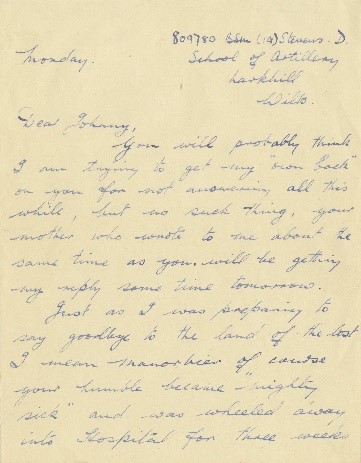 809780 BSM (IG) Stevens. D.
Monday. School of Artillery
Larkhill
Wilts.
Dear Johnny,
You will probably think
I am trying to get my "own back"
on you for not answering all this
while, but no such thing, your
mother who wrote to me about the
same time as you, will be getting
my reply some time tomorrow.
Just as I was preparing to
say goodbye to the land of the lost
I mean Manorbier of course
your humble became "mighty
sick" and was wheeled away
into Hospital for three weeks